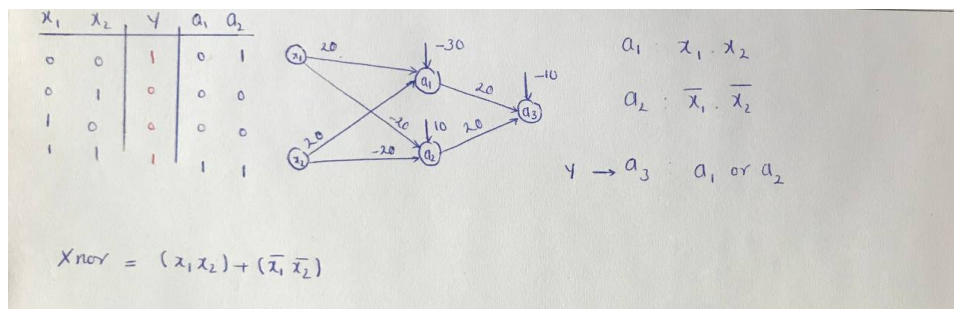 x₁ x₂ Y a₁ a₂
0 0 1 0 1
0 1 0 0 0
1 0 0 0 0
1 1 1 1 1
x₁ 20 -30
a₁ 20 -10
a₃
-20 10 20
20 a₂
x₂ -20
a₁ : x₁ . x₂
a₂ : x̅₁ . x̅₂
Y → a₃ : a₁ or a₂
Xnor = (x₁x₂) + (x̅₁ x̅₂)